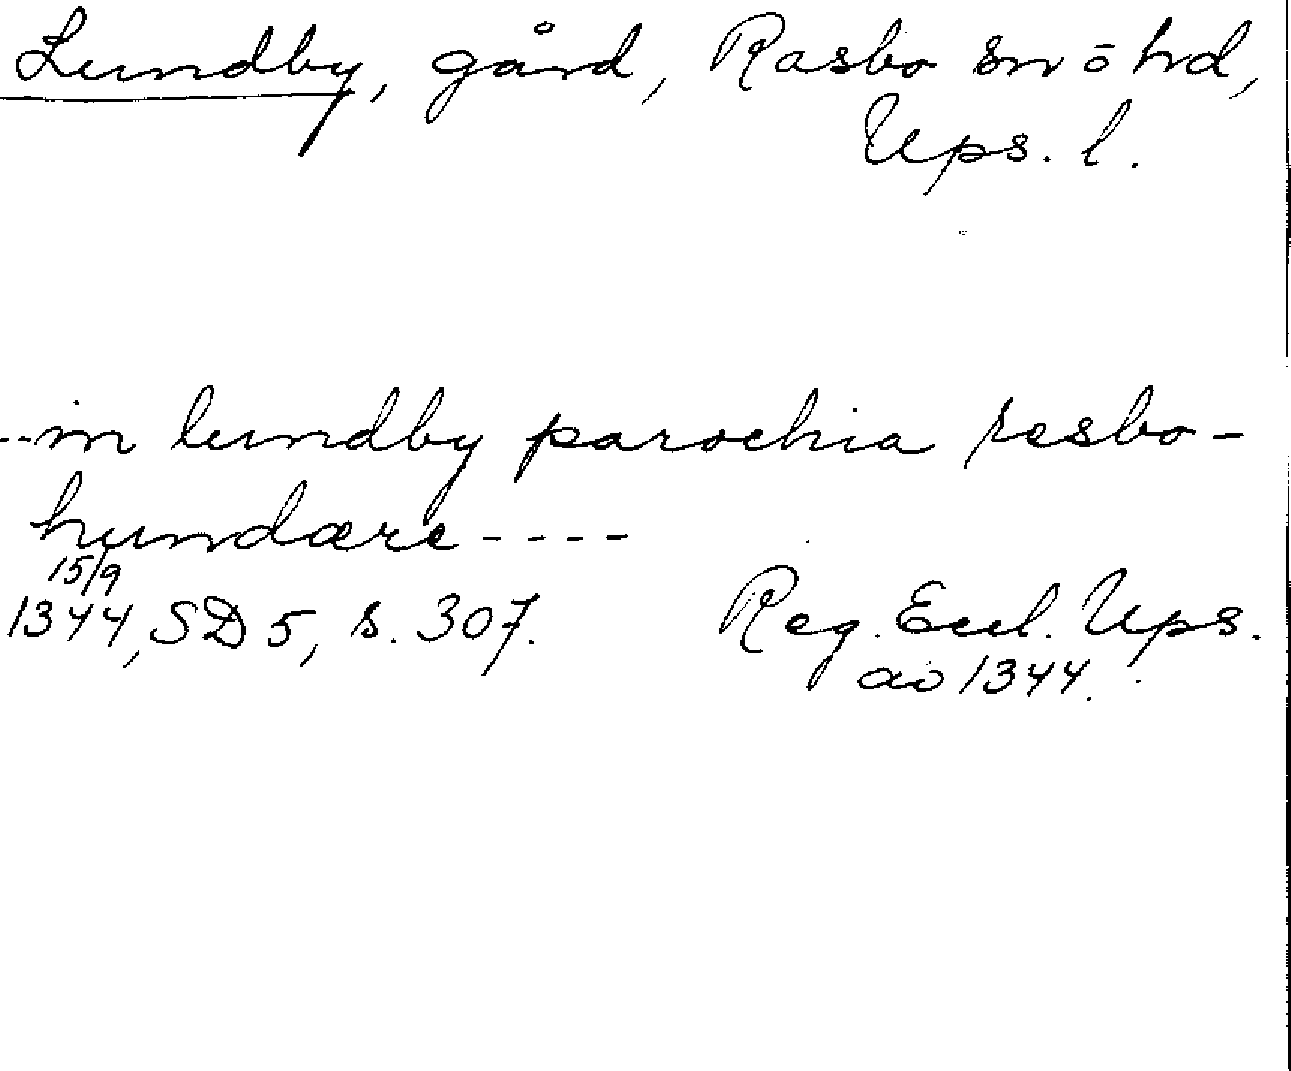 Lundby, gård, Rasbo sn o hd,
Ups. l.
--in lundby parochia resbo-
hundære----
15/9
1344, SD 5, s. 307. Reg. Eccl. Ups.
ao 1344.